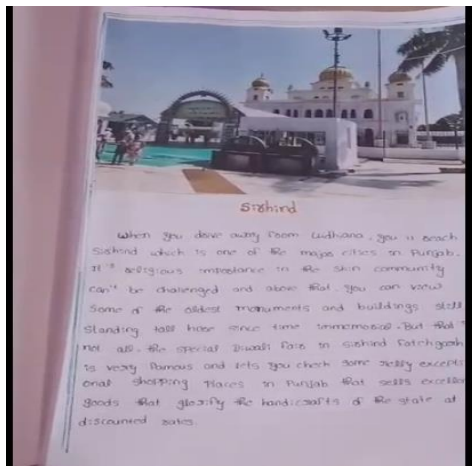 Sirhind
When you drive away from Ludhiana, you'll reach
Sirhind which is one of the major cities in Punjab.
It's religious importance in the Sikh community
can't be challenged and above that, you can view
some of the oldest monuments and buildings still
standing tall here since time immemorial. But that's
not all. the special Diwali fair in Sirhind Fatehgarh
is very famous and lets you check some really excepti
onal shopping places in Punjab that sells excellent
goods that glorify the handicrafts of the state at
discounted rates.